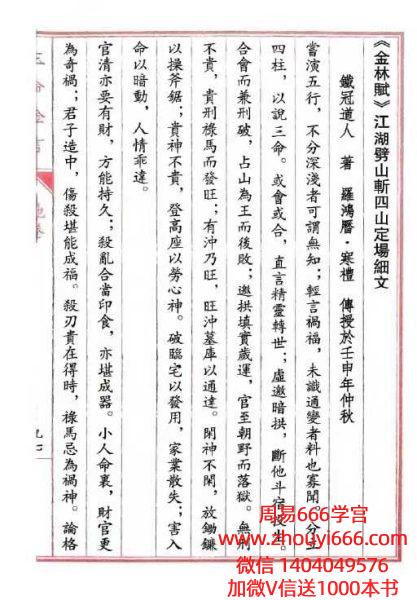 《金林賦》江湖劈山斬四山定場細文
鐵冠道人　著　羅鴻曆·寒禮　傳授於壬申年仲秋
當演五行，不分深淺者可謂無知；輕言禍福，未識通變者料也寡聞。分立
四柱，以說三命。或會或合，直言精靈轉世；虛邀暗拱，斷他斗宿投生。
合會而兼刑破，占山為王而後敗；邀拱填實歲運，官至朝野而落獄。無刑
不貴，貴刑祿馬而發旺；有沖乃旺，旺沖墓庫以通達。閑神不閑，放鋤鐮
以操斧鋸；貴神不貴，登高座以勞心神。破臨宅以發用，家業散失；害入
命以暗動，人情乖違。
官清亦要有財，方能持久；殺亂合當印食，亦堪成器。小人命裏，財官更
為奇禍；君子造中，傷殺堪能成福。殺刃貴在得時，祿馬忌為禍神。論格
周易666学宫
www.zhouyi666.com
微信 1404049576
加微V信送1000本书